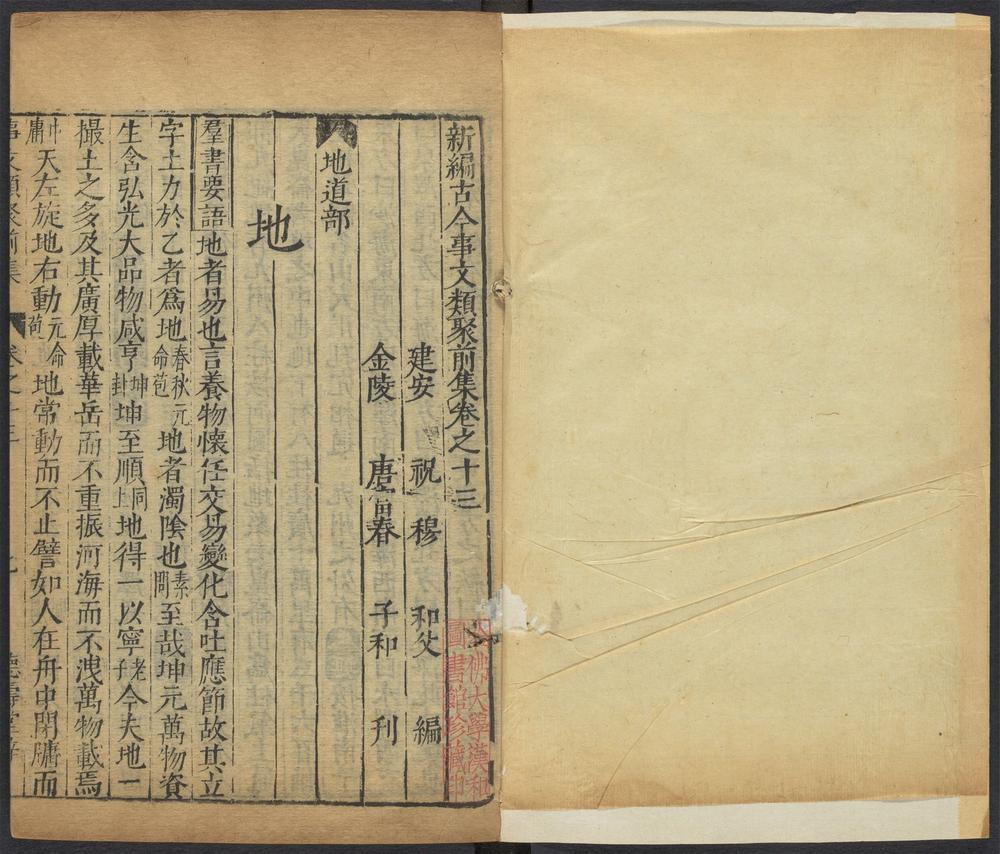 新編古今事文類聚前集卷之十三
建安 祝 穆 和父 編
金陵 唐富春 子和 刊
地道部
地
羣書要語地者易也言養物懷任交易變化含吐應節故其立
字土力於乙者爲地春秋元命苞地者濁陰也素問至哉坤元萬物資
生含弘光大品物咸亨坤卦坤至順同上地得一以寧老子今夫地一
撮土之多及其廣厚載華岳而不重振河海而不洩萬物載焉
中庸天左旋地右動元命苞地常動而不止譬如人在舟中閉牖而
事文類聚前集 卷之十三 九 德壽堂梓
哈佛大學漢和
圖書館珍藏印